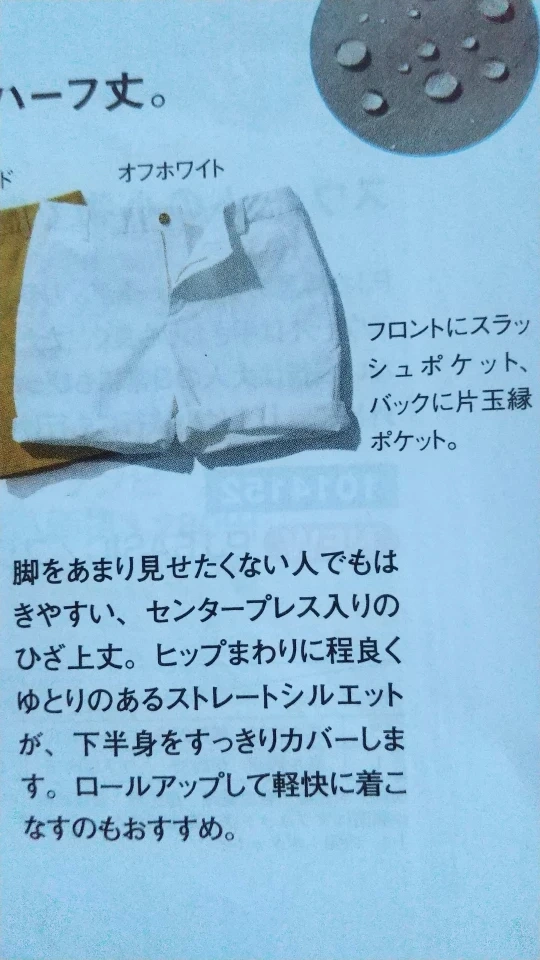 ハーフ丈。
ド
オフホワイト
フロントにスラッ
シュポケット、
バックに片玉縁
ポケット。
脚をあまり見せたくない人でもは
きやすい、センタープレス入りの
ひざ上丈。ヒップまわりに程良く
ゆとりのあるストレートシルエット
が、下半身をすっきりカバーしま
す。ロールアップして軽快に着こ
なすのもおすすめ。